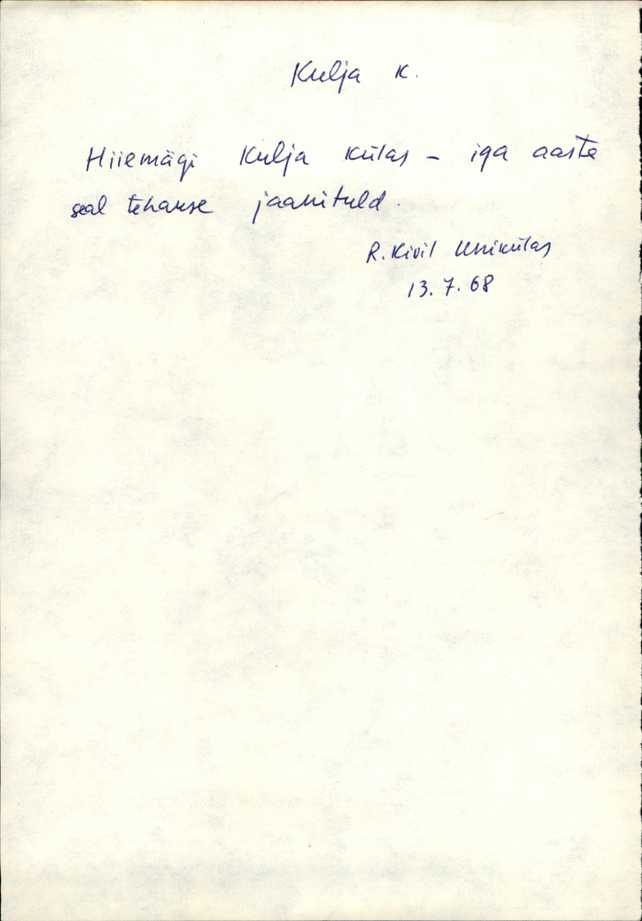 Kulja k.
Hiiemägi Kulja külas – iga aasta
seal tehakse jaanituld.
R. Kivil Unikülas
13.7.68